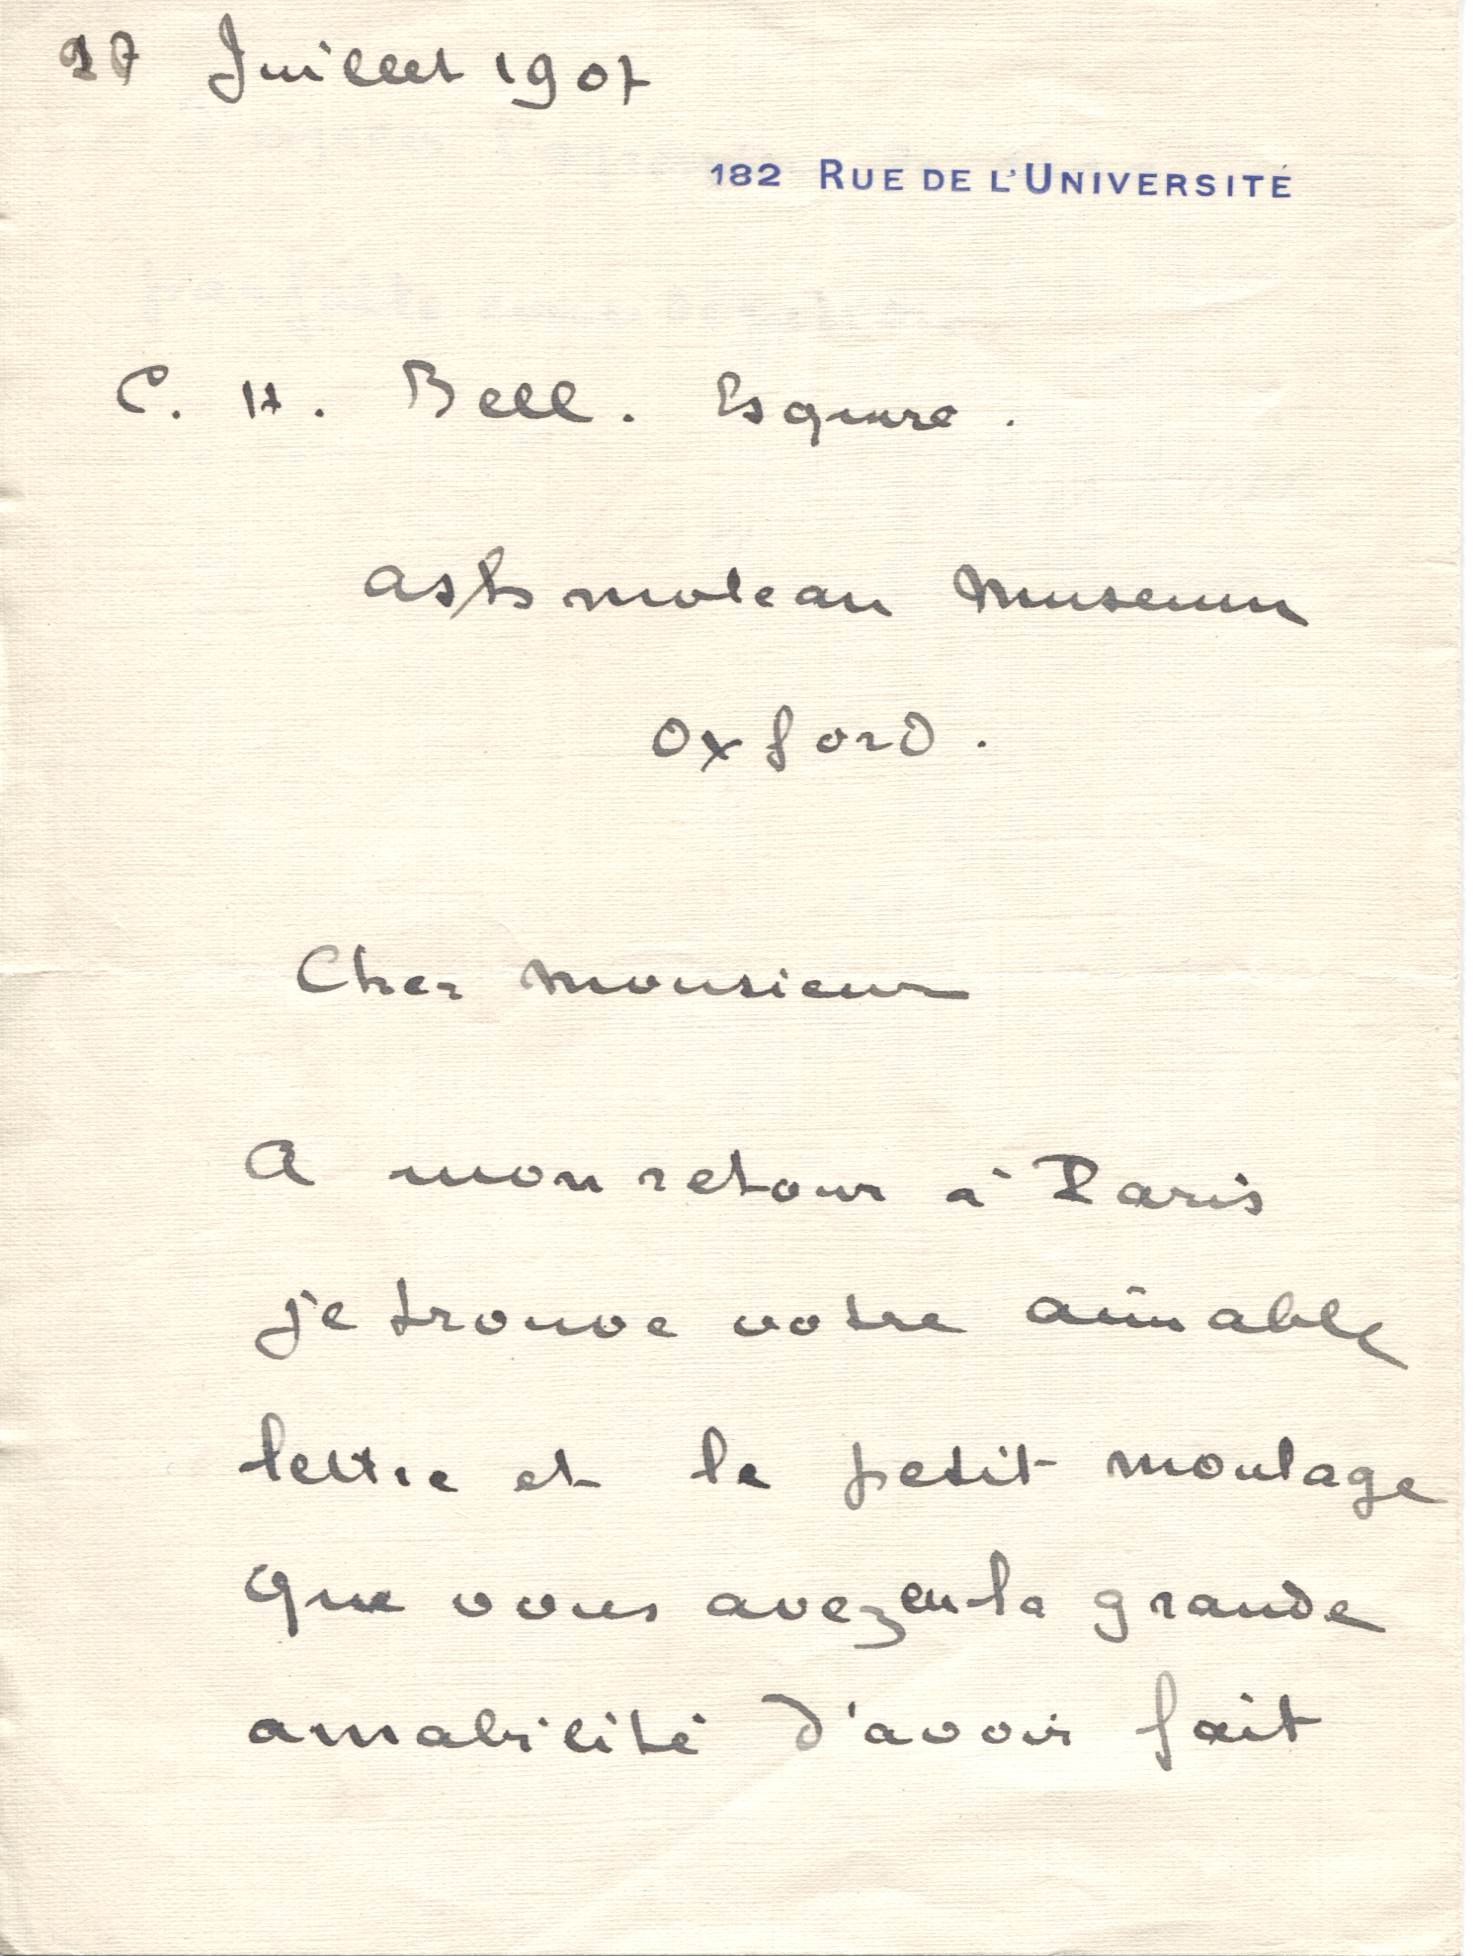 17 Juillet 1907
182 RUE DE L'UNIVERSITÉ
C. H. Bell. Esquire.
Ashmolean Museum
Oxford.
Cher Monsieur
A mon retour à Paris
je trouve votre aimable
lettre et le petit moulage
que vous avez eu la grande
amabilité d'avoir fait